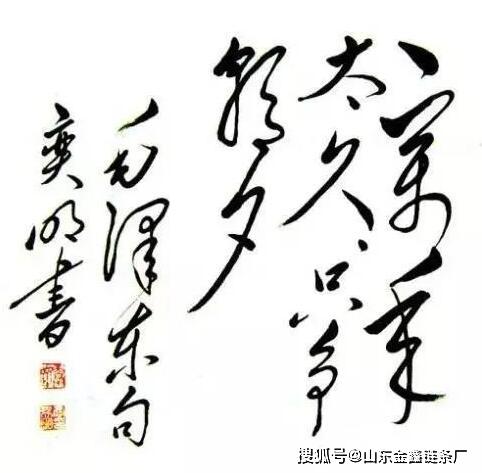 一萬年
太久只争
朝夕
毛澤東句
奕明書
搜狐号@山东金鑫链条厂